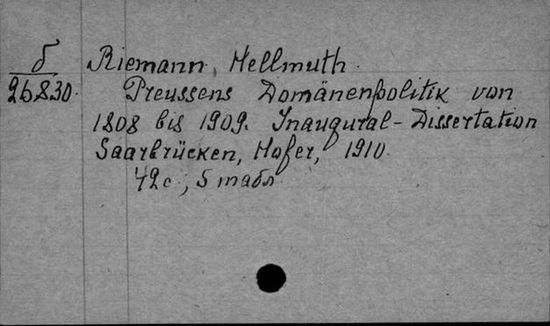 б
26830
Riemann, Hellmuth.
Preussens Domänenpolitik von
1808 bis 1909. Inaugural-Dissertation
Saarbrücken, Hofer, 1910.
42с., 5 табл